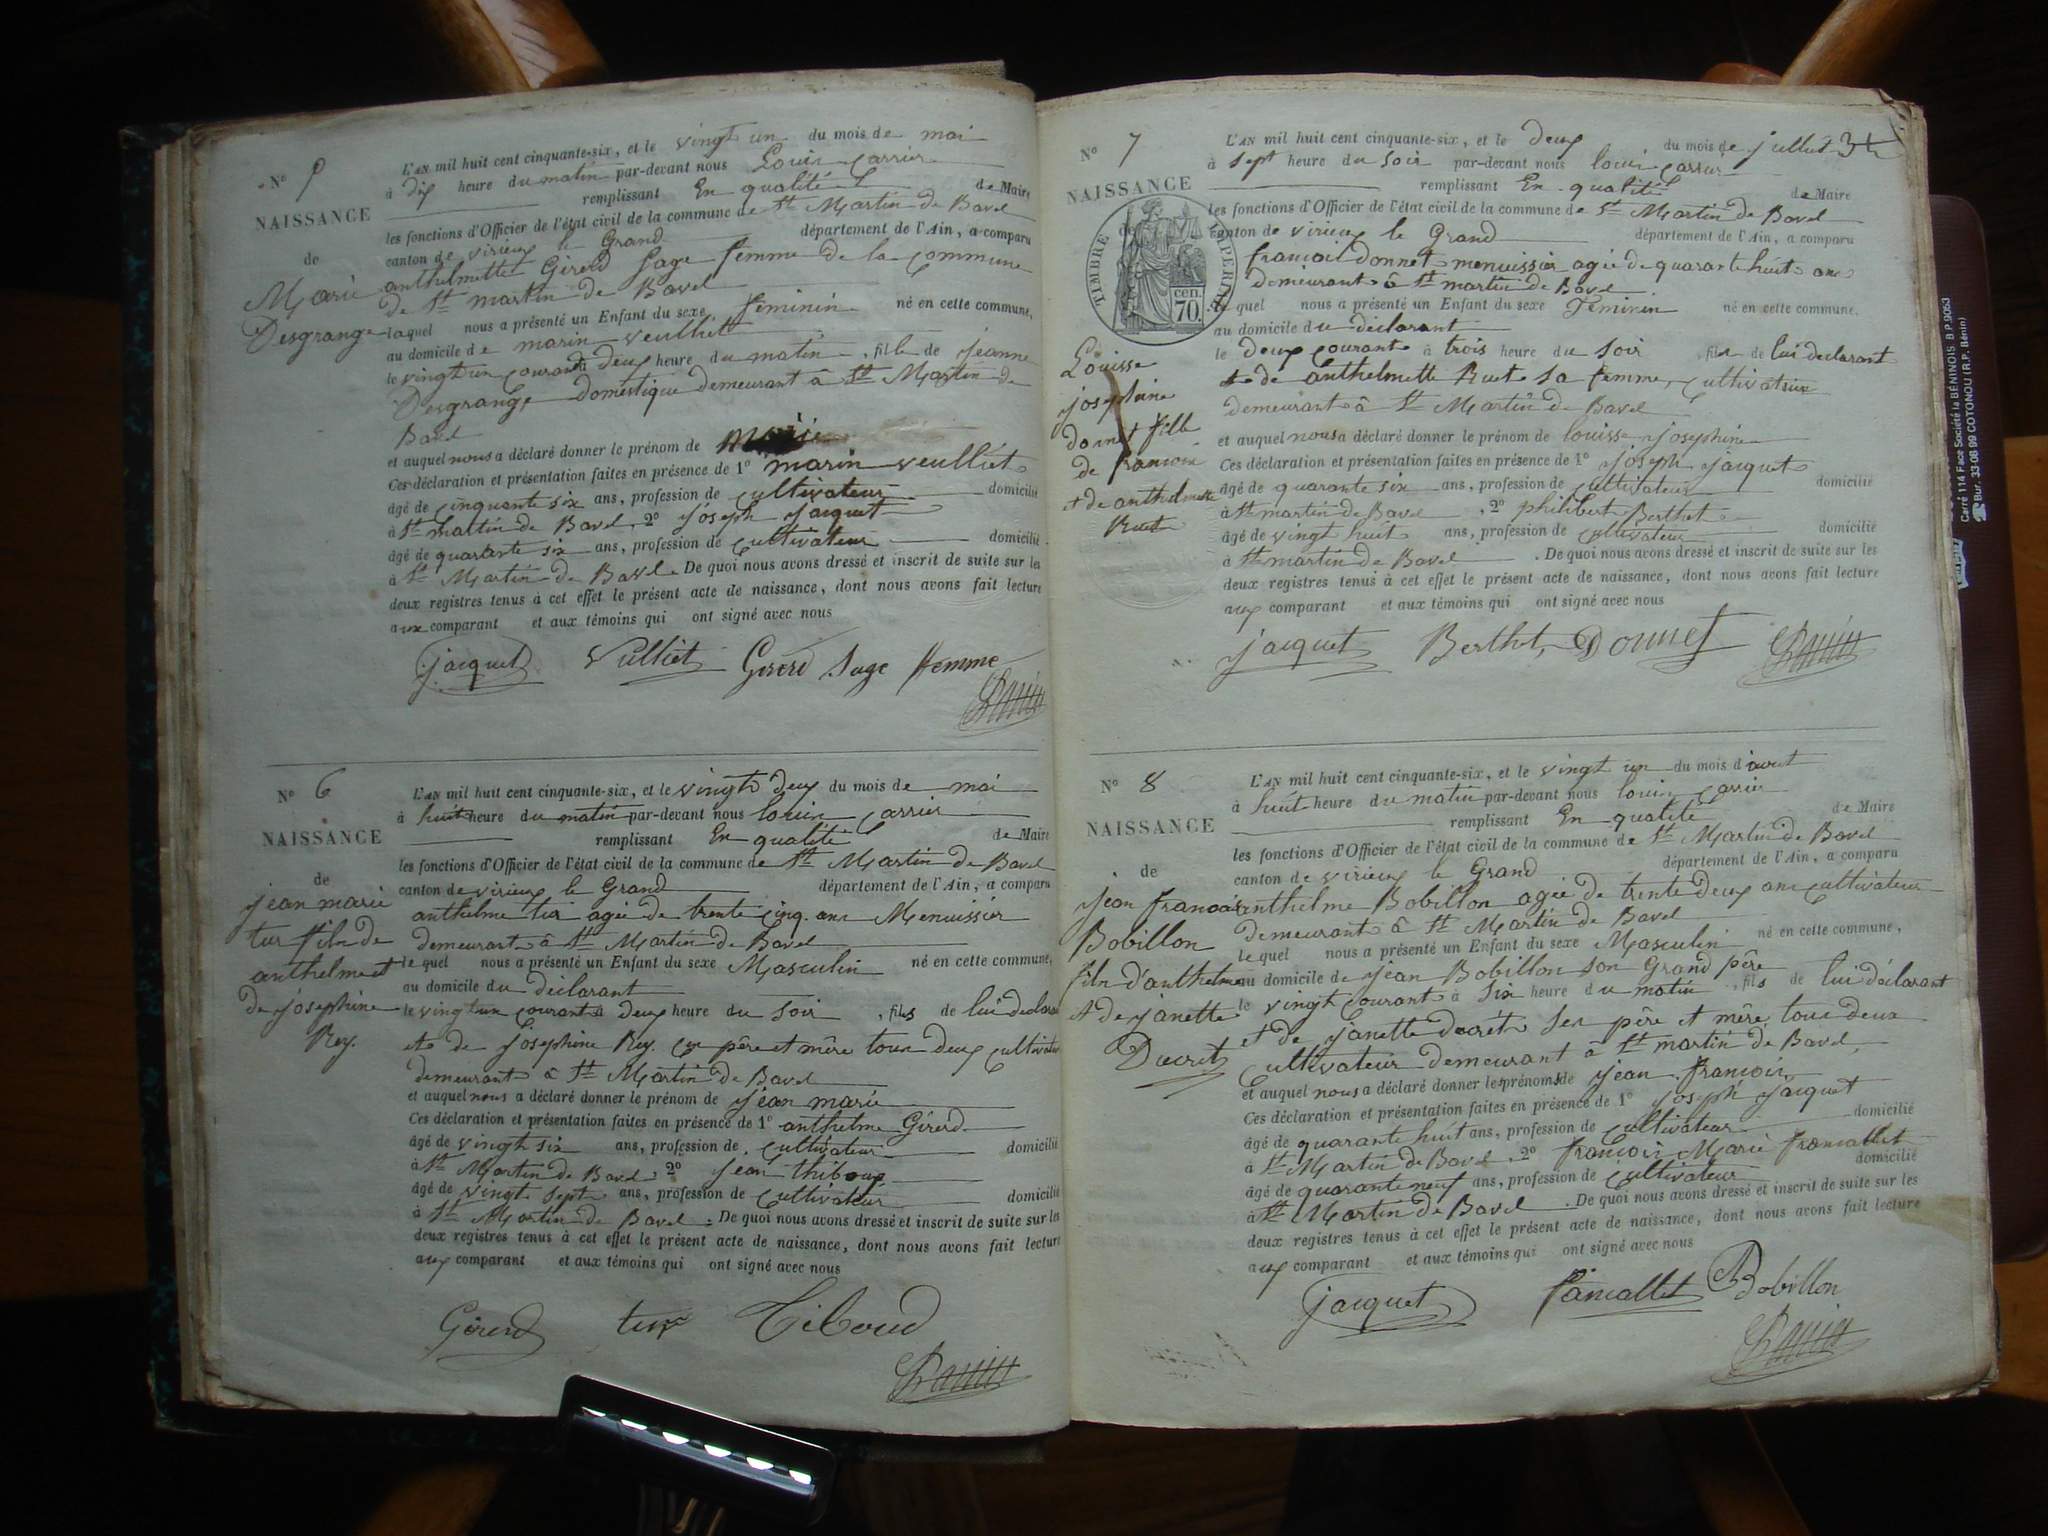 N° 5
NAISSANCE
de
Marie
Desgrange
L'AN mil huit cent cinquante-six, et le vingt un du mois de mai
à dix heure du matin par-devant nous Louis Carrier
remplissant En qualité de Maire
les fonctions d'Officier de l'état civil de la commune de St Martin de Bavel
canton de virieux le Grand département de l'Ain, a comparu
anthelmette Girerd sage femme de la commune
de St martin de Bavel
laquel nous a présenté un Enfant du sexe féminin né en cette commune,
au domicile de marin veulliet
le vingt un courant à deux heure du matin, fille de jeanne
Desgrange domestique demeurant à St Martin de
Bavel
et auquel nous a déclaré donner le prénom de Marie
Ces déclaration et présentation faites en présence de 1° marin veulliet
âgé de cinquante six ans, profession de cultivateur domicilié
à St martin de Bavel, 2° joseph jacquet
âgé de quarante six ans, profession de cultivateur domicilié
à St Martin de Bavel. De quoi nous avons dressé et inscrit de suite sur les
deux registres tenus à cet effet le présent acte de naissance, dont nous avons fait lecture
aux comparant et aux témoins qui ont signé avec nous
jacquet Vulliet Girerd Sage femme
N° 6
NAISSANCE
de
jean marie
tur fils de
anthelme et
de josephine
Rey.
L'AN mil huit cent cinquante-six, et le vingt deux du mois de mai
à huit heure du matin par-devant nous louis carrier
remplissant En qualité de Maire
les fonctions d'Officier de l'état civil de la commune de St Martin de Bavel
canton de virieux le Grand département de l'Ain, a comparu
anthelme tur agée de trente cinq ans Menuissier
demeurant à St Martin de Bavel
le quel nous a présenté un Enfant du sexe Masculin né en cette commune,
au domicile du déclarant
le vingt un courant à deux heure du soir, fils de lui déclarant
et de josephine Rey. ces père et mère tous deux cultivateur
demeurant à St Martin de Bavel
et auquel nous a déclaré donner le prénom de jean marie
Ces déclaration et présentation faites en présence de 1° anthelme Girerd
âgé de vingt six ans, profession de cultivateur domicilié
à St Martin de Bavel 2° jean thiboux
âgé de vingt sept ans, profession de cultivateur domicilié
à St Martin de Bavel. De quoi nous avons dressé et inscrit de suite sur les
deux registres tenus à cet effet le présent acte de naissance, dont nous avons fait lecture
aux comparant et aux témoins qui ont signé avec nous
Girerd tur Tiboud
N° 7
NAISSANCE
de
TIMBRE IMPERIAL
70 cen.
Louisse
josephine
donnet fille
de francois
et de anthelmette
Ruet
34
L'AN mil huit cent cinquante-six, et le deux du mois de juillet
à sept heure du soir par-devant nous louis carrier
remplissant En qualité de Maire
les fonctions d'Officier de l'état civil de la commune de St Martin de Bavel
canton de virieux le Grand département de l'Ain, a comparu
francois donnet menuissier agée de quarante huit ans
demeurant à St martin de Bavel
le quel nous a présenté un Enfant du sexe Féminin né en cette commune,
au domicile du déclarant
le deux courant à trois heure du soir, fille de lui déclarant
et de anthelmette Ruet sa femme, cultivateur
demeurant à St Martin de Bavel
et auquel nous a déclaré donner le prénom de louisse josephine
Ces déclaration et présentation faites en présence de 1° joseph jacquet
âgé de quarante six ans, profession de cultivateur domicilié
à St martin de Bavel, 2° philibert Berthet
âgé de vingt huit ans, profession de cultivateur domicilié
à St martin de Bavel. De quoi nous avons dressé et inscrit de suite sur les
deux registres tenus à cet effet le présent acte de naissance, dont nous avons fait lecture
aux comparant et aux témoins qui ont signé avec nous
jacquet Berthet Donnet
N° 8
NAISSANCE
de
jean francois
Bobillon
fils d'anthelme
et de janette
Ducret
L'AN mil huit cent cinquante-six, et le vingt un du mois d'aout
à huit heure du matin par-devant nous louis carrier
remplissant En qualité de Maire
les fonctions d'Officier de l'état civil de la commune de St Martin de Bavel
canton de virieux le Grand département de l'Ain, a comparu
anthelme Bobillon agée de trente deux ans cultivateur
demeurant à St Martin de Bavel
le quel nous a présenté un Enfant du sexe Masculin né en cette commune,
au domicile de jean Bobillon son Grand père
le vingt courant à six heure du matin, fils de lui déclarant
et de janette ducret ses père et mère tous deux
Cultivateur demeurant à St martin de Bavel,
et auquel nous a déclaré donner les prénoms de jean francois
Ces déclaration et présentation faites en présence de 1° joseph jacquet
âgé de quarante huit ans, profession de cultivateur domicilié
à St Martin de Bavel, 2° francois Marie francallet
âgé de quarante neuf ans, profession de cultivateur domicilié
à St Martin de Bavel. De quoi nous avons dressé et inscrit de suite sur les
deux registres tenus à cet effet le présent acte de naissance, dont nous avons fait lecture
aux comparant et aux témoins qui ont signé avec nous
jacquet francallet Bobillon
Carré 114 Face Société la BÉNINOIS. B.P. 9053
Bur. 33-08-99 COTONOU (R.P. Bénin)